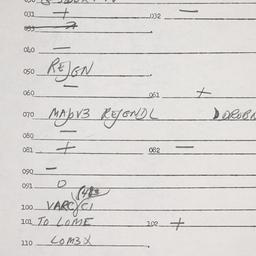 031 + 032 —
033
040 —
050 REJGN
060 — 061 +
070 MABV3 REJGNDL
080 —
081 + 082 —
090 —
091 O
100 VARC
101 TO LOME 102 +
110 LOM3X